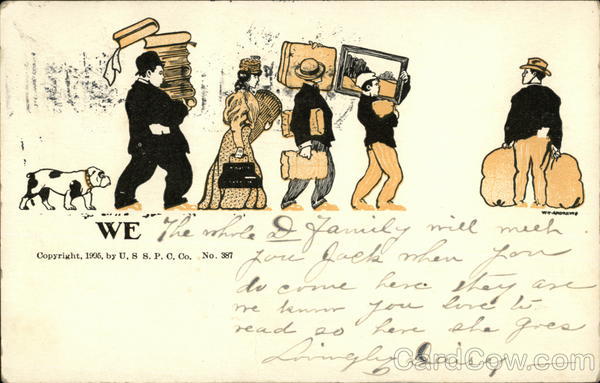 WE The whole D Family will meet
you Jack when you
Copyright, 1905, by U. S S. P. C. Co. No. 387
do come here they are
we know you love to
read so here she goes
Lovingly Daisy
W. R. ANDREWS
CardCow.com